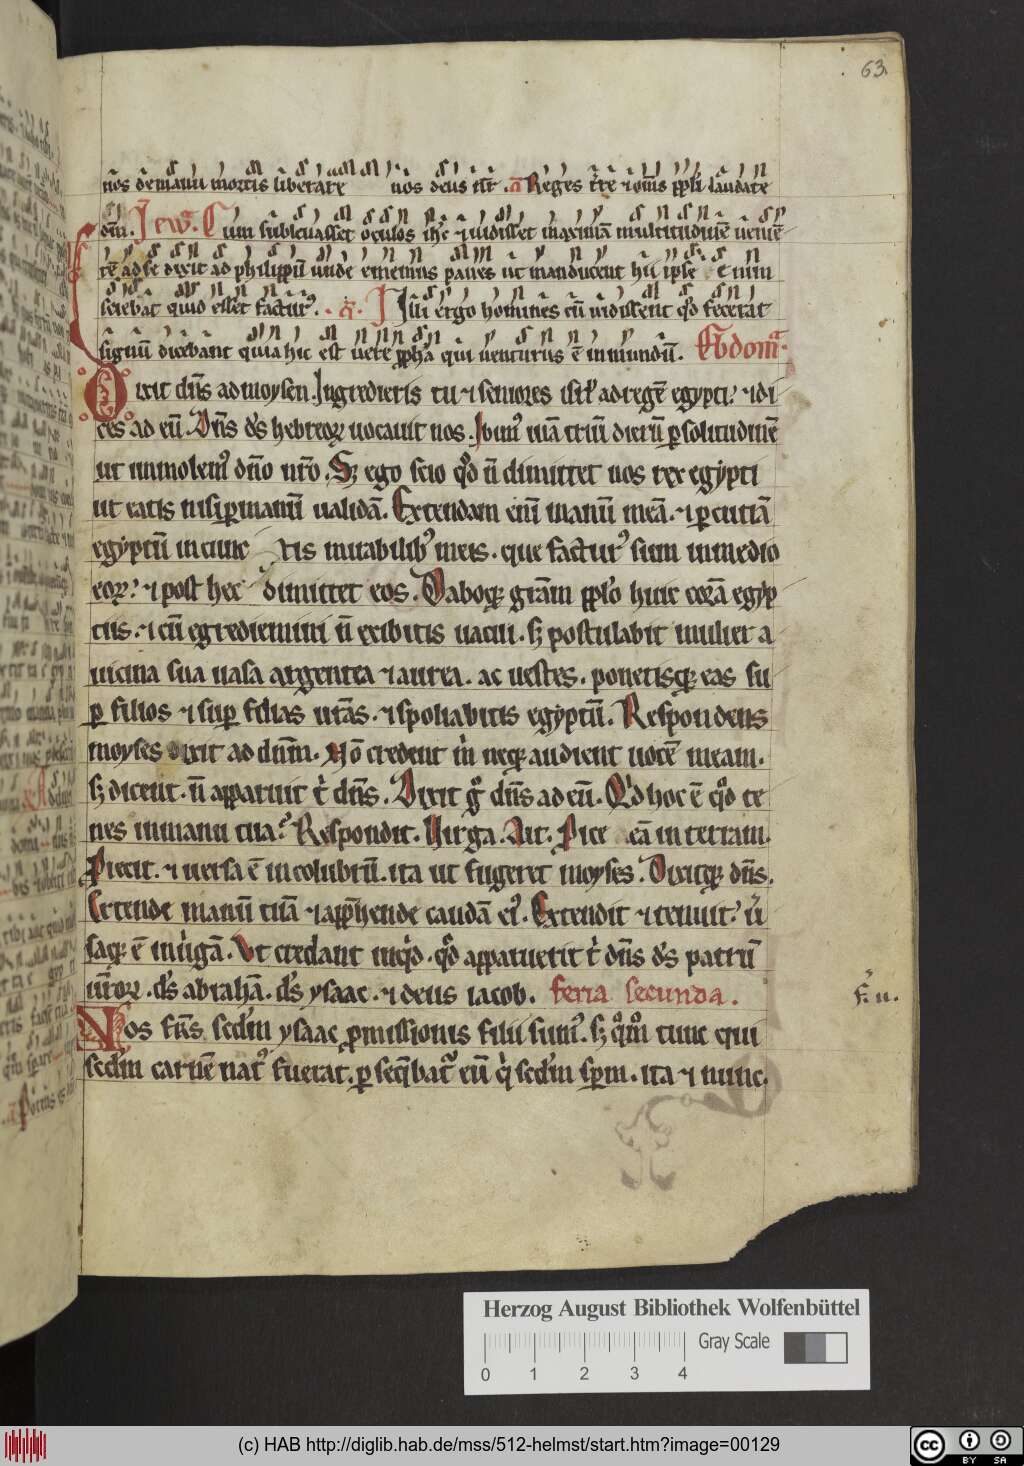 63.
nr̄os de manu mortis liberare nos deus nr̄. a Reges tr̄re ⁊ om̄s ppl̄i laudate
dn̄m. Cum subleuasset oculos ih̄c ⁊ uidisset maximā multitudinē ueniē
tē ad se dixit ad philippū unde ememus panes ut manducent hii ipse Enim
sciebat quid esset facturꝰ. a. Illi ergo homines cū uidissent qd̄ fecerat
signū dicebant quia hic est uere ꝓpha qui uenturus ē in mundū. Ebdoma.
Dixit dn̄s ad moysen. Ingredieris tu ⁊ seniores isrl̄ ad regē egypti. ⁊ di
ces ad eū. Dn̄s ds̄ hebreoꝝ uocauit nos. Ibimꝰ uiā triū dierū ꝑ solitudinē
ut immolemꝰ dn̄o nr̄o. Sꝫ ego scio qd̄ n̄ dimittet uos rex egypti
ut eatis nisi ꝑ manū ualidā. Extendam eni manū meā. ⁊ ꝑcutiā
egyptū in cunc tis mirabilibꝰ meis. que facturꝰ sum in medio
eoꝝ. ⁊ post hec dimittet eos. Daboqꝫ grām ppl̄o huic corā egyp
tiis. ⁊ cū egrediemini n̄ exibitis uacui. sꝫ postulabit mulier a
uicina sua uasa argentea ⁊ aurea. ac uestes. ponetisqꝫ eas su
ꝑ filios ⁊ suꝑ filias ur̄as. ⁊ spoliabitis egyptū. Respondens
moyses dixit ad dn̄m. Nō credent m̄ neqꝫ audient uocē meam.
sꝫ dicent. n̄ apparuit t̄ dn̄s. Dixit g̊ dn̄s ad eū. Qd̄ hoc ē qd̄ te
nes in manu tua? Respondit. Uirga. Ait. Pice eā in terram.
Piecit. ⁊ uersa ē in colubrū. ita ut fugeret moyses. Dixitqꝫ dn̄s.
Extende manū tuā ⁊ appͤhende caudā eiꝰ. Extendit ⁊ tenuit. ū
saqꝫ ē in uirgā. Ut credant inqd̄. qd̄ apparuerit t̄ dn̄s ds̄ patrū
ur̄oꝝ. ds̄ abrahā. ds̄ ysaac. ⁊ deus iacob. feria secunda.
f̄. ii.
Nos fr̄s scdm̄ ysaac ꝓmissionis filii sumꝰ. sꝫ qm̊ tunc qui
scdm̄ carnē natꝰ fuerat. ꝑseq̄bat᷑ eū q̄ scdm̄ sp̄m. ita ⁊ nunc.
Herzog August Bibliothek Wolfenbüttel
0 1 2 3 4 Gray Scale
(c) HAB http://diglib.hab.de/mss/512-helmst/start.htm?image=00129
cc BY SA